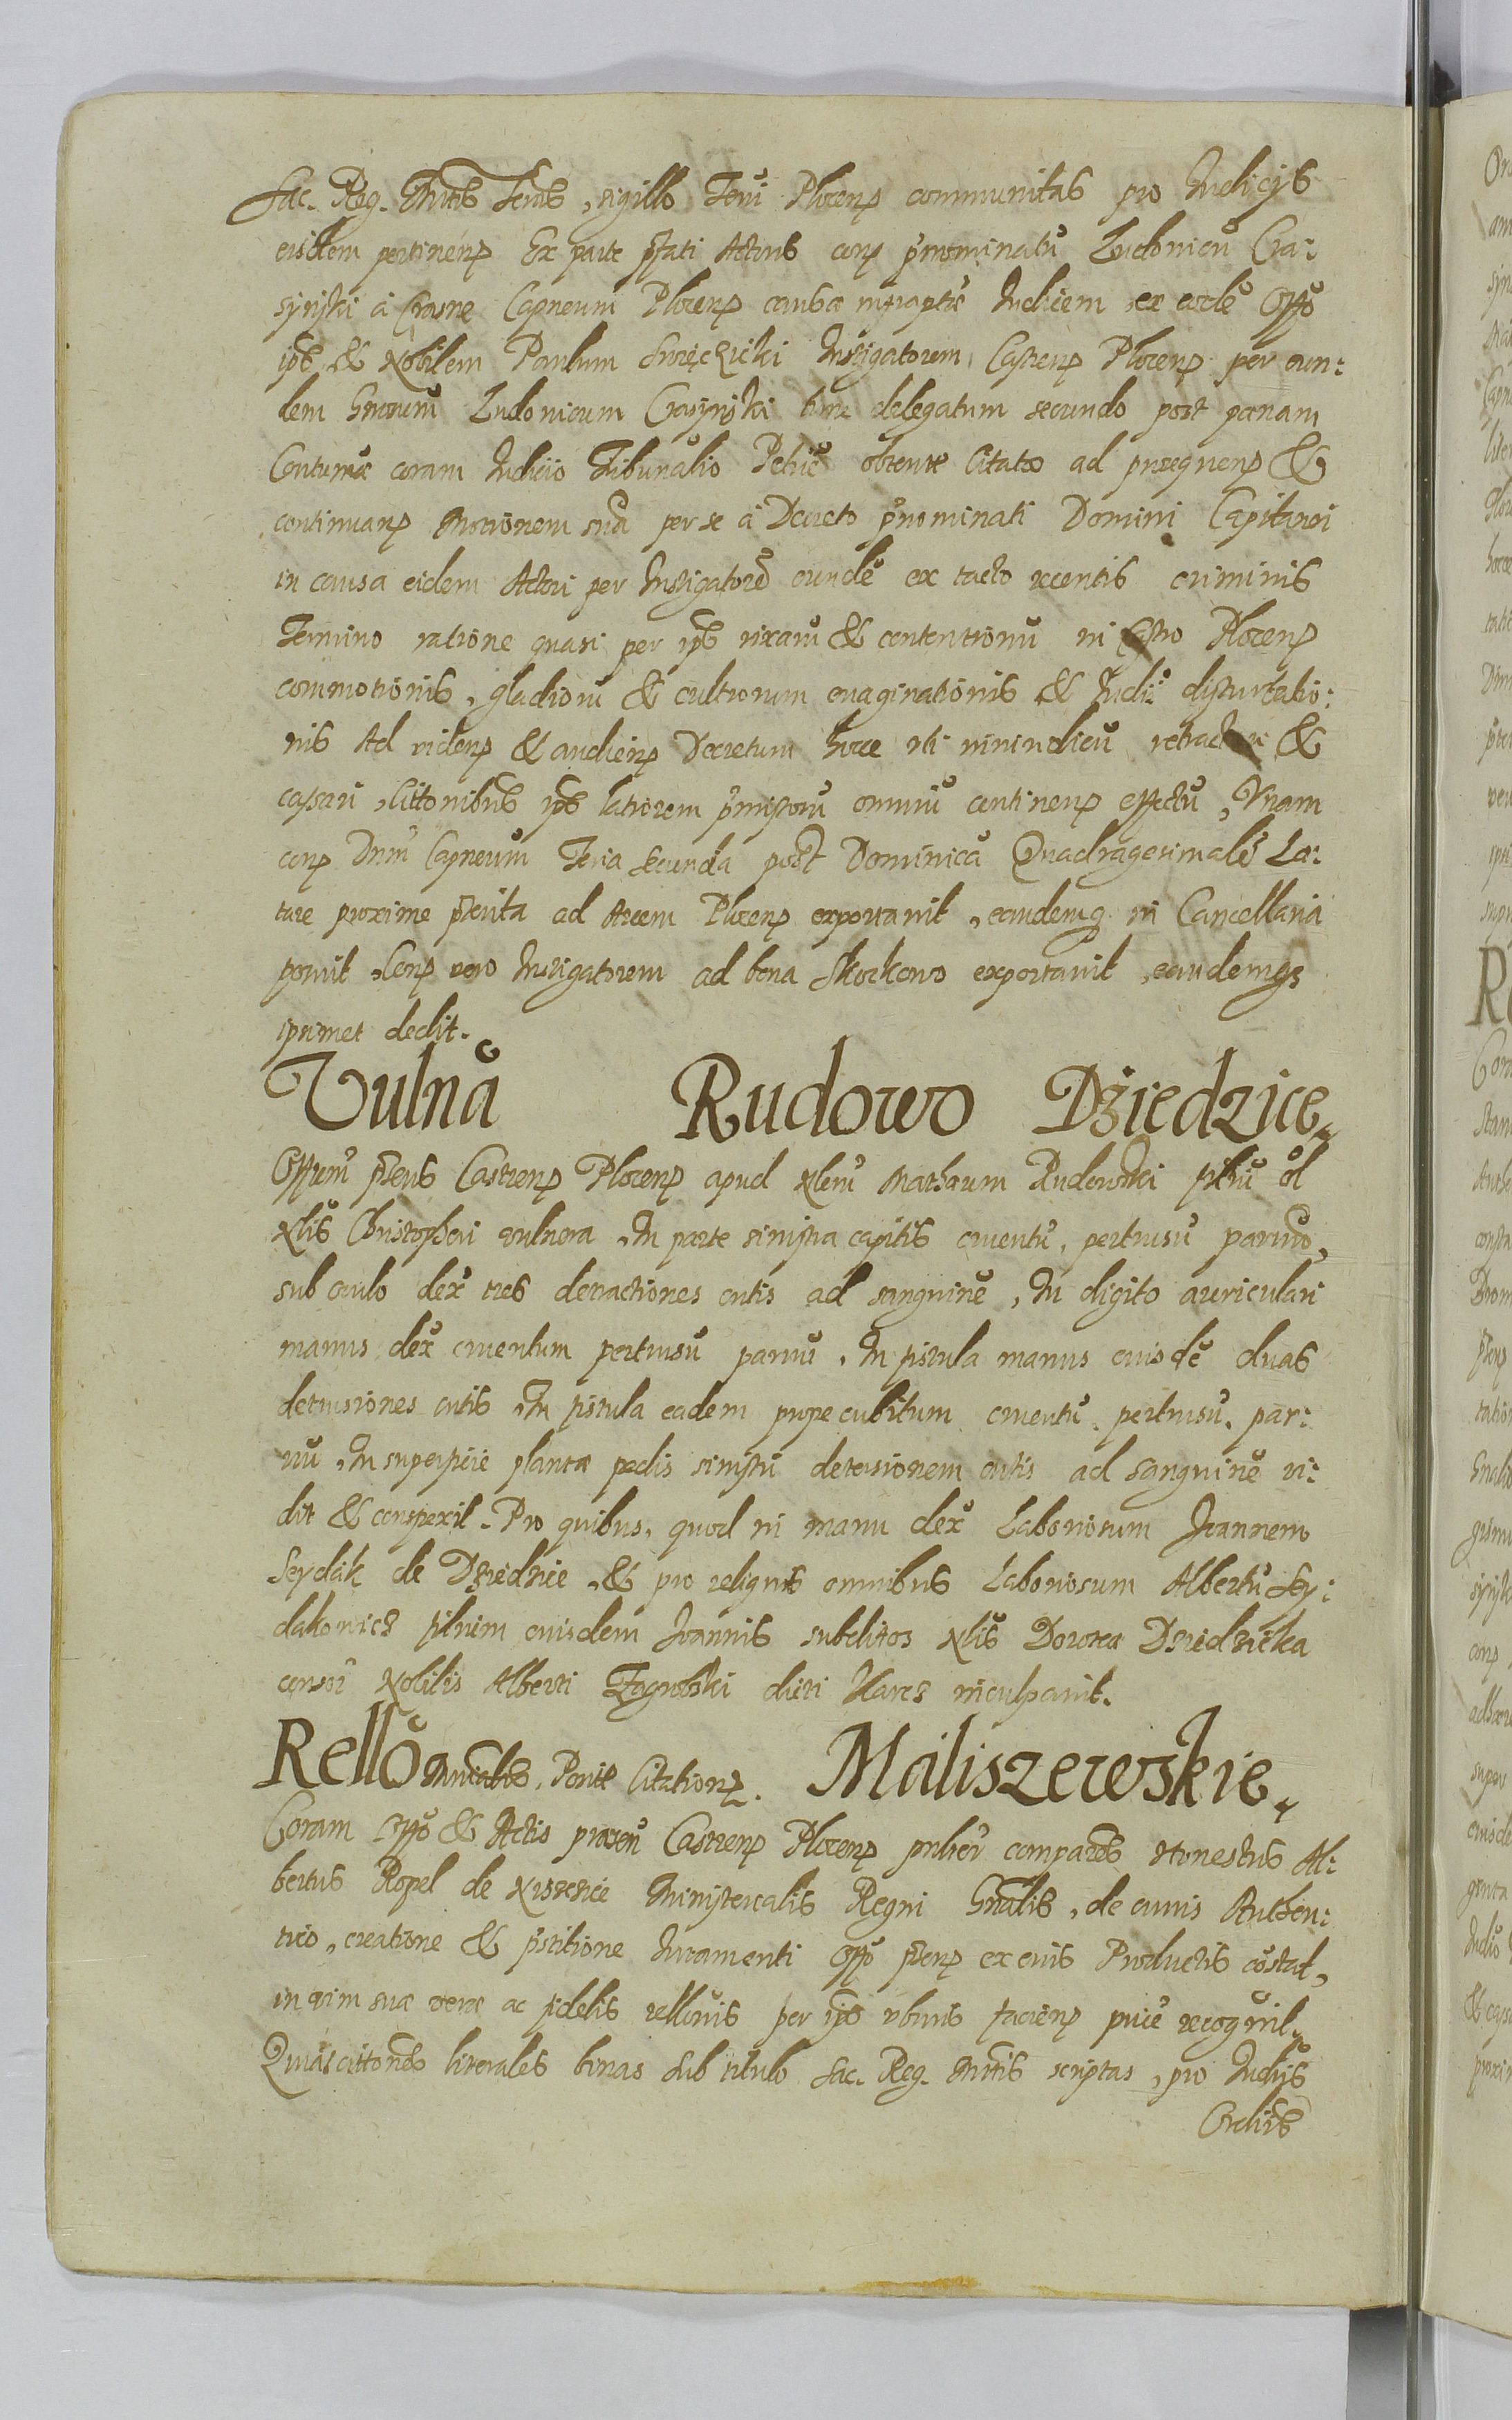 Sac. Reg. Mttis Scrib, sigillo Terri Plocen communitas pro Iudicijs
eisdem pertinen Ex parte pfati Actoris con pnominatu Ludovicu Cra:
sijnski à Crasne Capneum Plocen causae infraptae Iudicem ex eode Offo
ipe & Nobilem Paulum Instigatorem Castren Plocen per eun:
dem Gnosum Ludovicum Crasijnski tunc delegatum secundo post paenam
Contumae coram Iudicio Tribunalio Petric obtente Citatio ad prosequen &
continuan Motionem sua per se à Decreto pnominati Domini Capitanei
in causa eidem Actori per Instigatore eunde ex tacto recentis criminis
Termino ratione quasi per ips rixaru & contentionu in Castro Plocen
commotionis, gladioru & cultrorum evaginationis & Iudii disturbatio:
nis Ad viden & audien Decretum hocce uti iniudicu retractari &
cassari, Cittonibus ips latiorem pmissoru omniu continen effectu, Unam
con Dnm Capneum Feria Secunda post Dominica Quadragesimale Lae:
tare proxime pterita ad Arcem Plocen exportavit, eandemq in Cancellaria
posuit, Con vero Instigatorem ad bona Skorkowo exportavit, eandemqz
ipsimet dedit.
Vulna Rudowo Dziedzice
Offium pens Castren Plocen apud Nlem Mathaeum Rudowski filiu ol
Nlis Christopheri vulnera, In parte sinistra capitis cruentu, pertusu parvuo,
sub oculo dex tres detractiones cutis ad sanguine, In digito auriculari
manus dex cruentum pertusu parvu, In fistula manus eiusde duas
detrusiones cutis, In fistula eadem prope cubitum cruentu pertusu par:
vu, In superficie plantae pedis sinistri detersionem cutis ad sanguine vi:
dit & conspexit. Pro quibus, quod in manu dex Laboriosum Joannem
Seydak de Dziedzice, & pro reliquis omnibus Laboriosum Albertu Sey:
dakowicz filium eiusdem Joannis subditos Nlis Dorotea Dziedzicka
consor Nobilis Alberti Zagrobski dicti Harcz inculpavit.
Rello Mnialis, Ponte Citation. Maliszewskie
Coram Offo & Actis praesen Castren Plocen psnlter comparens Honestus Al:
bertus Ropel de Niszczice Ministerialis Regni Gnalis, de cuius Authen:
tico, creatione & pstitione Iuramenti Offo psen ex eius Productis costat,
in vim suae verae ac fidelis rellonis per ips ubius facien puce recognit
Quia Cittones literales binas sub titulo Sac. Reg. Mttis scriptas, pro Iudijs
Ordiis